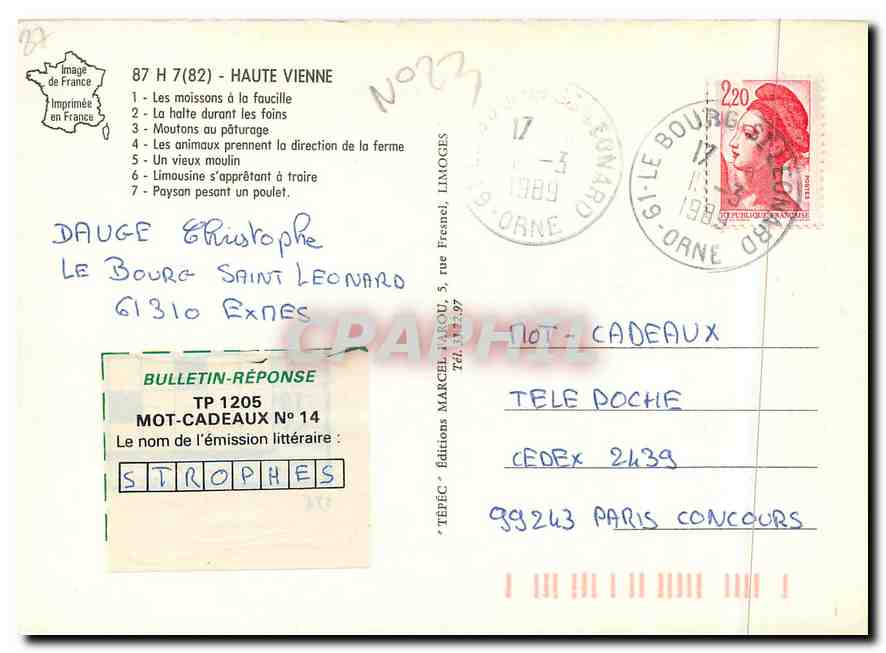 87
Image
de France
Imprimée
en France
87 H 7(82) - HAUTE VIENNE
1 - Les moissons à la faucille
2 - La halte durant les foins
3 - Moutons au pâturage
4 - Les animaux prennent la direction de la ferme
5 - Un vieux moulin
6 - Limousine s'apprêtant à traire
7 - Paysan pesant un poulet.
N° 23
DAUGE Christophe
LE BOURG SAINT LEONARD
61310 EXMES
BULLETIN-RÉPONSE
TP 1205
MOT-CADEAUX N° 14
Le nom de l'émission littéraire :
STROPHES
"TÉPÉC" Éditions MARCEL FAROU, 5, rue Fresnel, LIMOGES
Tél. 33.22.97
17
-3
1989
61-LE BOURG-ST-LEONARD
ORNE
2,20
POSTES
REPUBLIQUE FRANÇAISE
61-LE BOURG-ST-LEONARD
17
-3
1989
ORNE
MOT-CADEAUX
TELE POCHE
CEDEX 2439
99243 PARIS CONCOURS
CPAPHIL